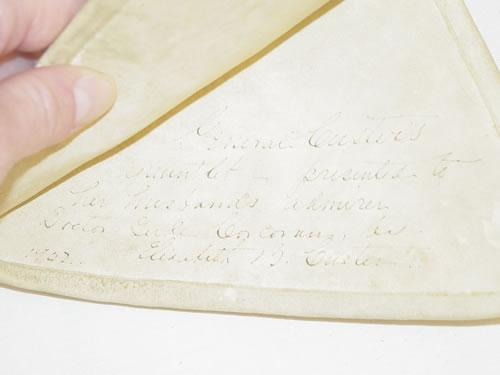 General Custer's
gauntlet - presented to
her husband's admirer
Doctor Corcoran, by
Elizabeth B. Custer